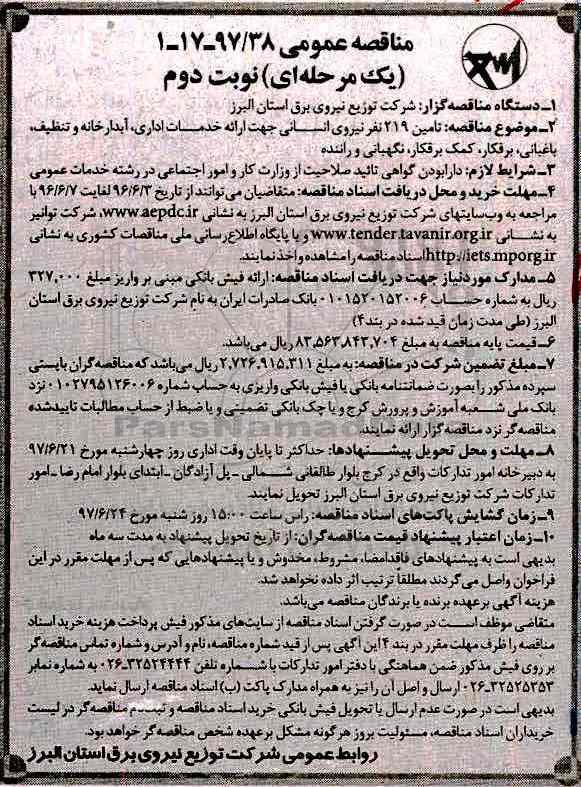 مناقصه عمومی ۹۷/۳۸-۱۷-۱
(یک مرحله‌ای) نوبت دوم
۱ـ دستگاه مناقصه‌گزار: شرکت توزیع نیروی برق استان البرز
۲ـ موضوع مناقصه: تامین ۲۱۹ نفر نیروی انسانی جهت ارائه خدمات اداری، آبدارخانه و تنظیف،
باغبانی، برقکار، کمک برقکار، نگهبانی و راننده
۳ـ شرایط لازم: دارابودن گواهی تائید صلاحیت از وزارت کار و امور اجتماعی در رشته خدمات عمومی
۴ـ مهلت خرید و محل دریافت اسناد مناقصه: متقاضیان می‌توانند از تاریخ ۹۶/۶/۳ لغایت ۹۶/۶/۷ با
مراجعه به وب‌سایتهای شرکت توزیع نیروی برق استان البرز به نشانی www.aepdc.ir، شرکت توانیر
به نشانی www.tender.tavanir.org.ir و یا پایگاه اطلاع‌رسانی ملی مناقصات کشوری به نشانی
http://iets.mporg.ir اسناد مناقصه را مشاهده و اخذ نمایند.
۵ـ مدارک موردنیاز جهت دریافت اسناد مناقصه: ارائه فیش بانکی مبنی بر واریز مبلغ ۳۲۷,۰۰۰
ریال به شماره حساب ۰۱۰۱۵۲۰۱۵۲۰۰۶ بانک صادرات ایران به نام شرکت توزیع نیروی برق استان
البرز (طی مدت زمان قید شده در بند ۴)
۶ـ قیمت پایه مناقصه به مبلغ ۸۳,۵۶۳,۸۴۳,۷۰۴ ریال می‌باشد.
۷ـ مبلغ تضمین شرکت در مناقصه: به مبلغ ۲,۷۲۶,۹۱۵,۳۱۱ ریال می‌باشد که مناقصه‌گران بایستی
سپرده مذکور را بصورت ضمانتنامه بانکی یا فیش بانکی واریزی به حساب شماره ۰۱۰۲۷۹۵۱۲۶۰۰۶ نزد
بانک ملی شعبه آموزش و پرورش کرج و یا چک بانکی تضمینی و یا ضبط از حساب مطالبات تاییدشده
مناقصه‌گر نزد مناقصه‌گزار ارائه نمایند.
۸ـ مهلت و محل تحویل پیشنهادها: حداکثر تا پایان وقت اداری روز چهارشنبه مورخ ۹۷/۶/۲۱
به دبیرخانه امور تدارکات واقع در کرج بلوار طالقانی شمالی ـ پل آزادگان ـ ابتدای بلوار امام رضا ـ امور
تدارکات شرکت توزیع نیروی برق استان البرز تحویل نمایند.
۹ـ زمان گشایش پاکت‌های اسناد مناقصه: راس ساعت ۱۵:۰۰ روز شنبه مورخ ۹۷/۶/۲۴
۱۰ـ زمان اعتبار پیشنهاد قیمت مناقصه‌گران: از تاریخ تحویل پیشنهاد به مدت سه ماه
بدیهی است به پیشنهادهای فاقد امضا، مشروط، مخدوش و یا پیشنهادهایی که پس از مهلت مقرر در این
فراخوان واصل می‌گردند مطلقاً ترتیب اثر داده نخواهد شد.
هزینه آگهی برعهده برنده یا برندگان مناقصه می‌باشد.
متقاضی موظف است در صورت گرفتن اسناد مناقصه از سایت‌های مذکور فیش پرداخت هزینه خرید اسناد
مناقصه را ظرف مهلت مقرر در بند ۴ این آگهی پس از قید شماره مناقصه، نام و آدرس و شماره تماس مناقصه‌گر
بر روی فیش مذکور ضمن هماهنگی با دفتر امور تدارکات با شماره تلفن ۳۲۵۲۴۴۴۴-۰۲۶ به شماره نمابر
۳۲۵۲۵۲۵۳-۰۲۶ ارسال و اصل آن را نیز به همراه مدارک پاکت (ب) اسناد مناقصه ارسال نماید.
بدیهی است در صورت عدم ارسال یا تحویل فیش بانکی خرید اسناد مناقصه و ثبت نام مناقصه‌گر در لیست
خریداران اسناد مناقصه، مسئولیت بروز هرگونه مشکل برعهده شخص مناقصه‌گر خواهد بود.
روابط عمومی شرکت توزیع نیروی برق استان البرز